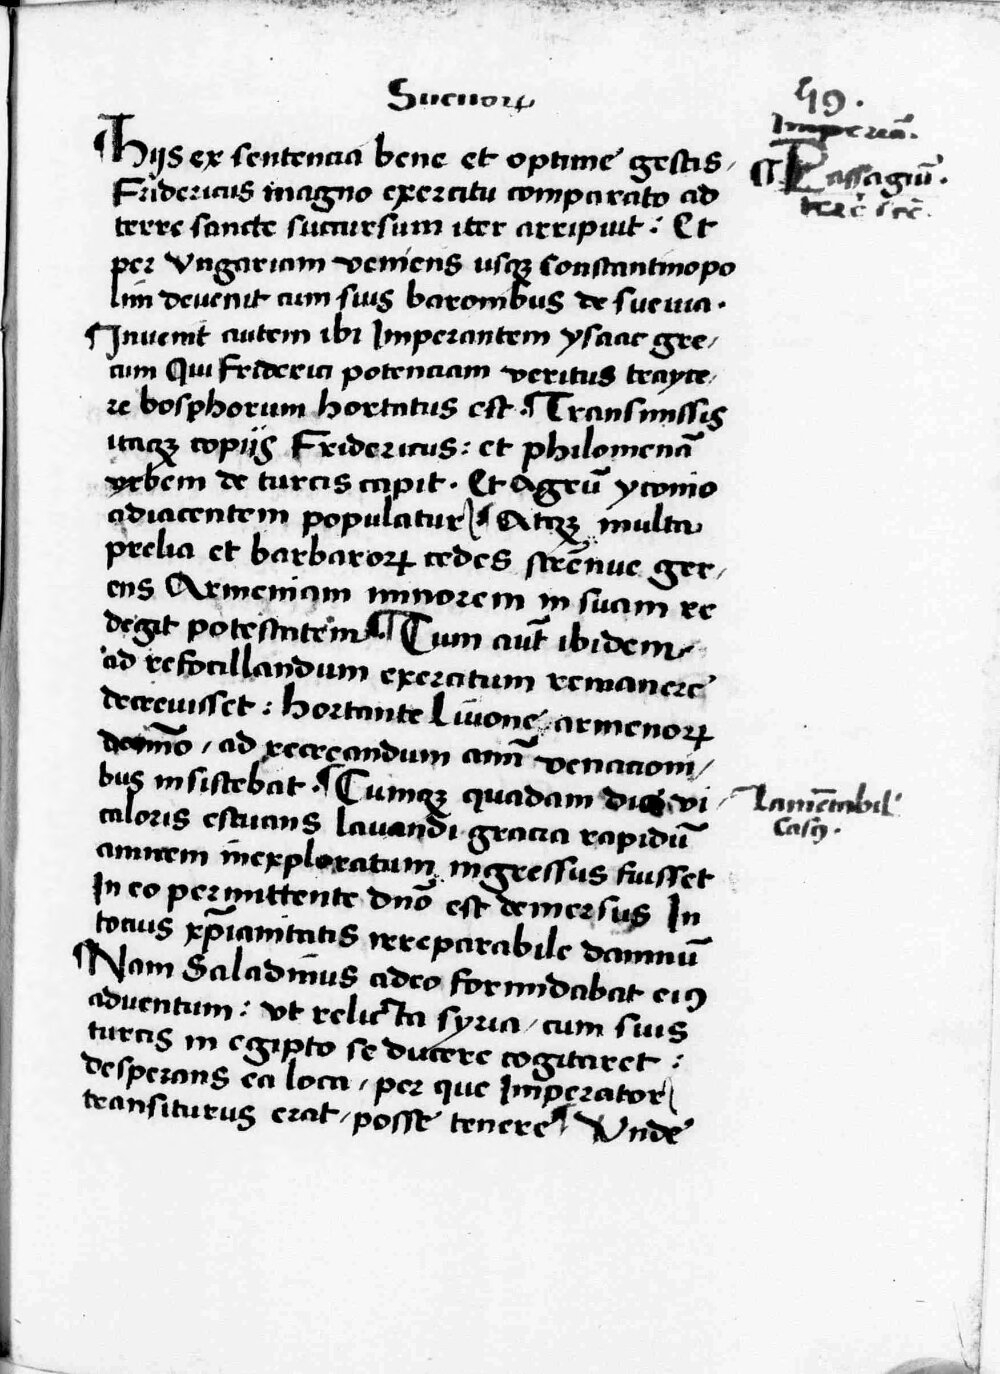 Sueuoꝝ
49.
Imperiū.
¶ Passagiū.
terꝛē sctē.
¶ Hijs ex sentencia bene et optime gestis,
Fridericus magno exercitu comparato ad
terre sancte succursum iter arripuit : Et
per Vngariam veniens usqꝫ Constantinopo
lim deuenit cum suis baronibus de sueuia.
¶ Inuenit autem ibi Imperantem ysaac gre,
cum Qui Friderici potenciam veritus trayce,
re bosphorum hortatus est. ¶ Transmissis
itaqꝫ copijs Fridericus : et philomenā
vrbem de turcis capit. Et Agrū yconio
adiacentem populatur ¶ Atqꝫ multa
prelia et barbaroꝝ cedes strēnue ger,
ens Armeniam minorem in suam re
degit potestatem ¶ Cum aūt ibidem
ad refocillandum exercitum remanere
decreuisset : hortante Liuone armenoꝝ
domīo, ad recreandum anīm venacioni,
bus insistebat. ¶ Cumqꝫ quadam die vi
caloris estuans lauandi gracia rapidū
Lamētabil'
Casꝰ.
amnem inexploratum ingressus fuisset
In eo permittente dn̄o est demersus In
tocius xp̄ianitatis irreparabile damnū
¶ Nam Saladinus adeo formidabat eiꝰ
aduentum : vt relicta syria, cum suis
turcis in egipto se ducere cogitaret :
desperans ea loca, per que Imperator
transiturus erat, posse tenere ¶ Vnde